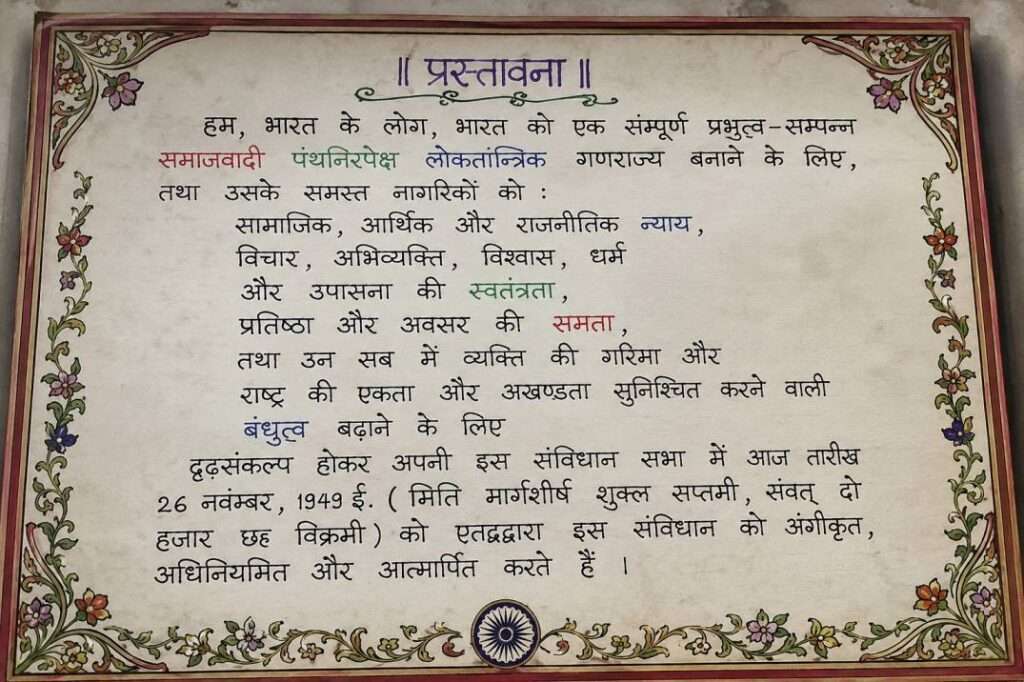 ॥ प्रस्तावना ॥
हम, भारत के लोग, भारत को एक संम्पूर्ण प्रभुत्व-सम्पन्न
समाजवादी पंथनिरपेक्ष लोकतांन्त्रिक गणराज्य बनाने के लिए,
तथा उसके समस्त नागरिकों को :
सामाजिक, आर्थिक और राजनीतिक न्याय,
विचार, अभिव्यक्ति, विश्वास, धर्म
और उपासना की स्वतंत्रता,
प्रतिष्ठा और अवसर की समता,
तथा उन सब में व्यक्ति की गरिमा और
राष्ट्र की एकता और अखण्डता सुनिश्चित करने वाली
बंधुत्व बढ़ाने के लिए
दृढ़संकल्प होकर अपनी इस संविधान सभा में आज तारीख
26 नवंम्बर, 1949 ई. ( मिति मार्गशीर्ष शुक्ल सप्तमी, संवत् दो
हजार छह विक्रमी ) को एतद्वद्वारा इस संविधान को अंगीकृत,
अधिनियमित और आत्मार्पित करते हैं ।